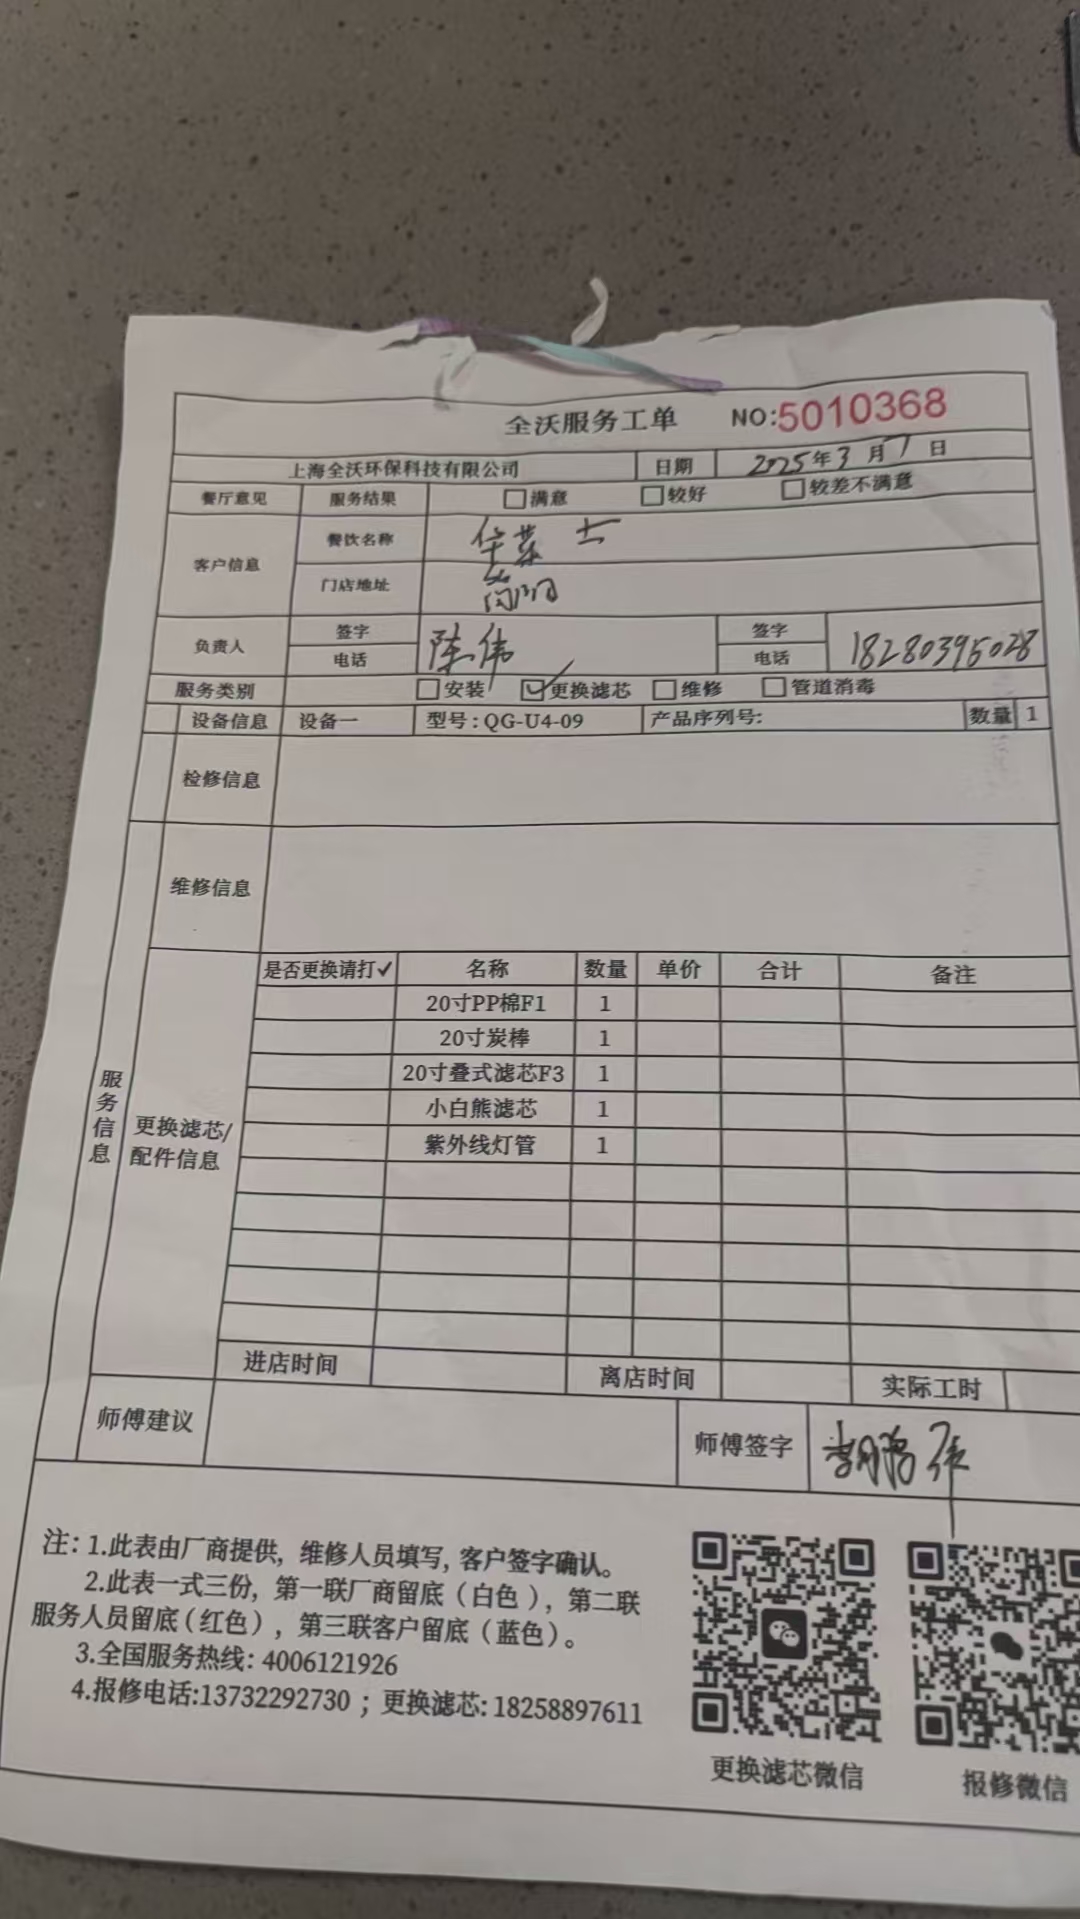 全沃服务工单 NO:5010368
上海全沃环保科技有限公司 日期 2025年3月7日
餐厅意见 服务结果 满意 较好 较差不满意
客户信息 餐饮名称 华莱士
门店地址 简阳
负责人 签字 陈伟 签字
电话 电话 18280395028
服务类别 安装 ✓更换滤芯 维修 管道消毒
设备信息 设备一 型号：QG-U4-09 产品序列号： 数量 1
检修信息
维修信息
服务信息
更换滤芯/配件信息
是否更换请打✓ 名称 数量 单价 合计 备注
20寸PP棉F1 1
20寸炭棒 1
20寸叠式滤芯F3 1
小白熊滤芯 1
紫外线灯管 1
进店时间 离店时间 实际工时
师傅建议 师傅签字
注：1.此表由厂商提供，维修人员填写，客户签字确认。
2.此表一式三份，第一联厂商留底（白色），第二联
服务人员留底（红色），第三联客户留底（蓝色）。
3.全国服务热线：4006121926
4.报修电话:13732292730；更换滤芯: 18258897611
更换滤芯微信 报修微信